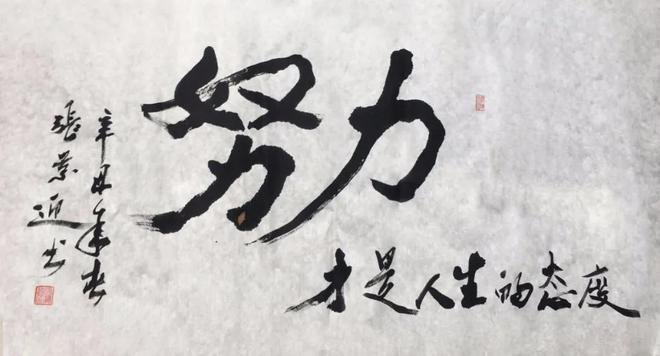 努力
才是人生的态度
辛丑年春
張景迎书